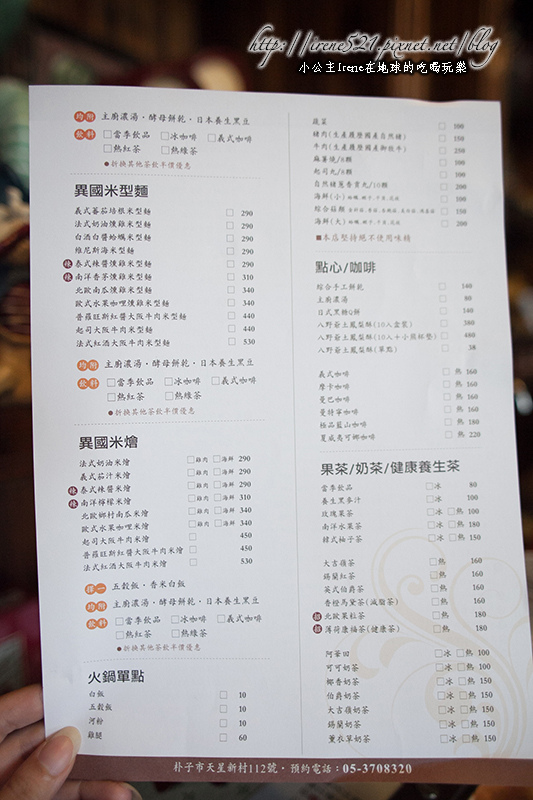 http://irene521.pixnet.net/blog
小公主Irene在地球的吃喝玩樂
均附 主廚濃湯‧酵母餅乾‧日本養生黑豆
飲料 □當季飲品 □冰咖啡 □義式咖啡
□熱紅茶 □熱綠茶
●折換其他茶飲半價優惠
異國米型麵
義式蕃茄培根米型麵 □ 290
法式奶油燻雞米型麵 □ 290
白酒白醬蛤蠣米型麵 □ 290
維尼斯海米型麵 □ 290
辣 泰式辣醬燻雞米型麵 □ 290
辣 南洋香茅燻雞米型麵 □ 310
北歐南瓜燻雞米型麵 □ 340
歐式水果咖哩燻雞米型麵 □ 340
普羅旺斯紅醬大阪牛肉米型麵 □ 440
起司大阪牛肉米型麵 □ 440
法式紅酒大阪牛肉米型麵 □ 530
均附 主廚濃湯‧酵母餅乾‧日本養生黑豆
飲料 □當季飲品 □冰咖啡 □義式咖啡
□熱紅茶 □熱綠茶
●折換其他茶飲半價優惠
異國米燴
法式奶油米燴 □雞肉 □海鮮 290
義式茄汁米燴 □雞肉 □海鮮 290
辣 泰式辣醬米燴 □雞肉 □海鮮 290
辣 南洋檸檬米燴 □雞肉 □海鮮 310
北歐鄉村南瓜米燴 □雞肉 □海鮮 340
歐式水果咖哩米燴 □雞肉 □海鮮 340
起司大阪牛肉米燴 □ 450
普羅旺斯紅醬大阪牛肉米燴 □ 450
法式紅酒大阪牛肉米燴 □ 530
擇一 五穀飯‧香米白飯
均附 主廚濃湯‧酵母餅乾‧日本養生黑豆
飲料 □當季飲品 □冰咖啡 □義式咖啡
□熱紅茶 □熱綠茶
●折換其他茶飲半價優惠
火鍋單點
白飯 □ 10
五穀飯 □ 10
河粉 □ 10
雞腿 □ 60
蔬菜 □ 100
豬肉(生產履歷國產自然豬) □ 150
牛肉(生產履歷國產御牧牛) □ 250
麻薯燒/8顆 □ 100
起司丸/8顆 □ 100
自然豬蔥香貢丸/10顆 □ 200
海鮮(小) □ 100
綜合菇類 □ 150
海鮮(大) □ 200
■本店堅持絕不使用味精
點心/咖啡
綜合手工餅乾 □ 140
主廚濃湯 □ 80
日式黑糖Q餅 □ 140
八野爺土鳳梨酥(10入盒裝) □ 380
八野爺土鳳梨酥(10入+小熊杯墊) □ 480
八野爺土鳳梨酥(單點) □ 38
義式咖啡 □熱 160
摩卡咖啡 □熱 160
曼巴咖啡 □熱 160
曼特寧咖啡 □熱 160
極品藍山咖啡 □熱 180
夏威夷可娜咖啡 □熱 220
果茶/奶茶/健康養生茶
當季飲品 □冰 80
養生黑豆汁 □冰 100
玫瑰果茶 □冰 □熱 100
南洋水果茶 □冰 □熱 180
韓式柚子茶 □冰 □熱 150
大吉嶺茶 □熱 160
錫蘭紅茶 □熱 160
英式伯爵茶 □熱 160
香橙馬黛茶(減脂茶) □熱 160
招 北歐果粒茶 □熱 180
招 薄荷康福茶(健康茶) □熱 180
阿華田 □冰 □熱 100
可可奶茶 □冰 □熱 100
椰香奶茶 □冰 □熱 150
伯爵奶茶 □冰 □熱 150
大吉嶺奶茶 □冰 □熱 150
錫蘭奶茶 □冰 □熱 150
薰衣草奶茶 □冰 □熱 150
朴子市天星新村112號‧預約電話：05-3708320